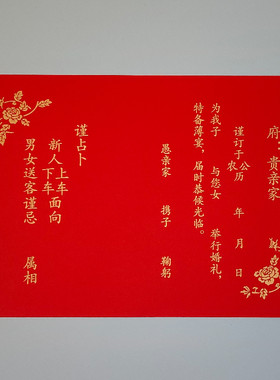 府:贵亲家
谨订于公历 年 月 日
农
为我子 与您女 举行婚礼,
特备薄宴,届时恭候光临。
愚亲家 携子 鞠躬
谨占卜
新人上车面向
下车
男女送客谨忌 属相